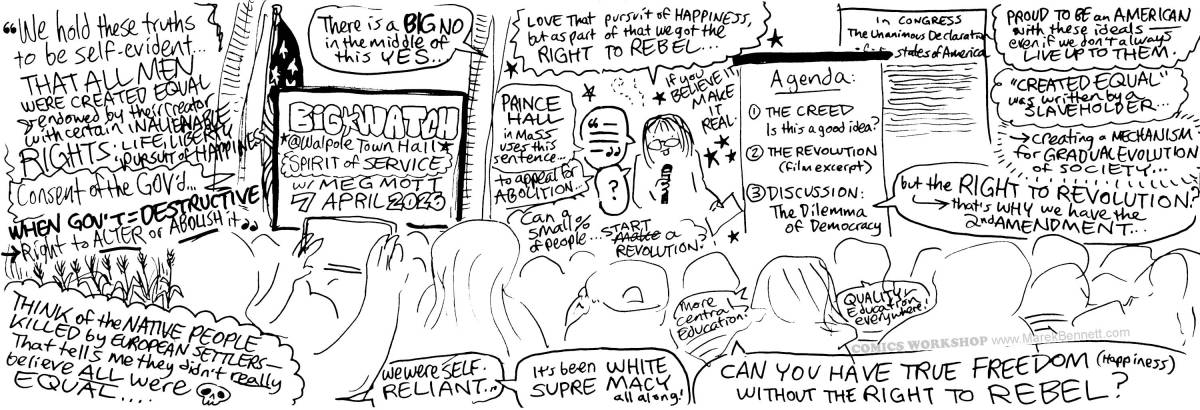 "We hold these truths
to be self-evident...
THAT ALL MEN
WERE CREATED EQUAL
endowed by their Creator
with certain INALIENABLE
RIGHTS: LIFE, LIBERTY,
pursuit of HAPPINESS
Consent of the GOV'd...
WHEN GOV'T = DESTRUCTIVE
→ Right to ALTER or ABOLISH it"
THINK of the NATIVE PEOPLE
KILLED by EUROPEAN SETTLERS—
That tells me they didn't really
believe ALL were
EQUAL....
There is a BIG NO
in the middle of
this YES...
BIG WATCH
@Walpole Town Hall
SPIRIT of SERVICE
w/ MEG MOTT
7 APRIL 2023
LOVE THAT pursuit of HAPPINESS,
but as part of that we got the
RIGHT TO REBEL...
PRINCE
HALL
in Mass
uses this
sentence...
to appeal for
ABOLITION...
Can a
small %
of people...
START
Make a
REVOLUTION?
"—
="
?
if you
BELIEVE IT
MAKE
IT
REAL.
In CONGRESS
The Unanimous Declarat
states of America
Agenda:
① THE CREED
Is this a good idea?
② THE REVOLUTION
(film excerpt)
③ DISCUSSION:
The Dilemma
of Democracy
PROUD TO BE an AMERICAN
with these ideals—
even if we don't always
LIVE UP TO THEM.
"CREATED EQUAL"
was written by a
SLAVEHOLDER...
→ creating a MECHANISM
for GRADUAL EVOLUTION
of SOCIETY...
but the RIGHT TO REVOLUTION?
→ that's WHY we have the
2nd AMENDMENT...
More
Central
Education?
QUALITY
Education
everywhere!
we were SELF-
RELIANT...
It's been WHITE
SUPREMACY
all along!
CAN YOU HAVE TRUE FREEDOM (Happiness)
WITHOUT THE RIGHT TO REBEL?
COMICS WORKSHOP www.MarekBennett.com